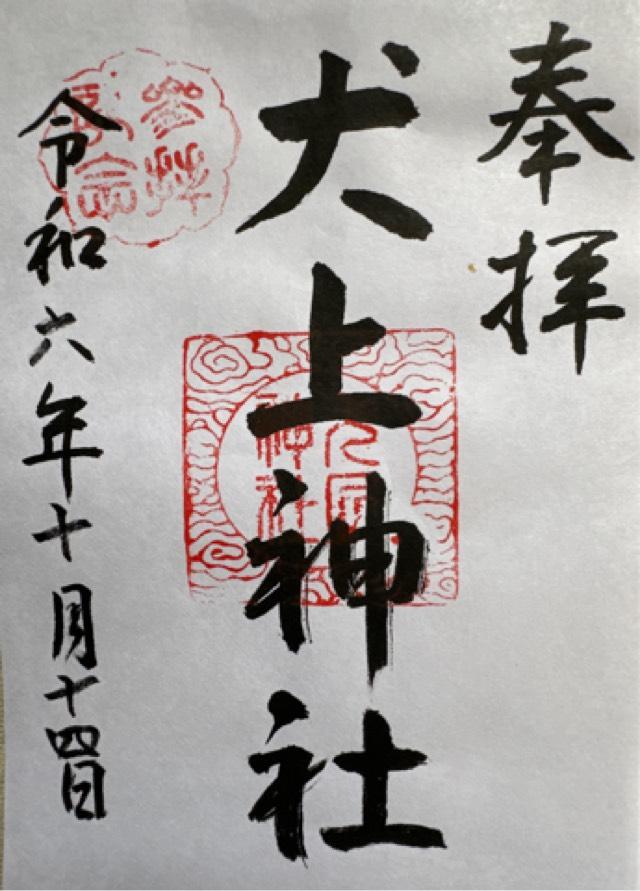 奉拝
犬上神社
令和六年十月十四日
神社